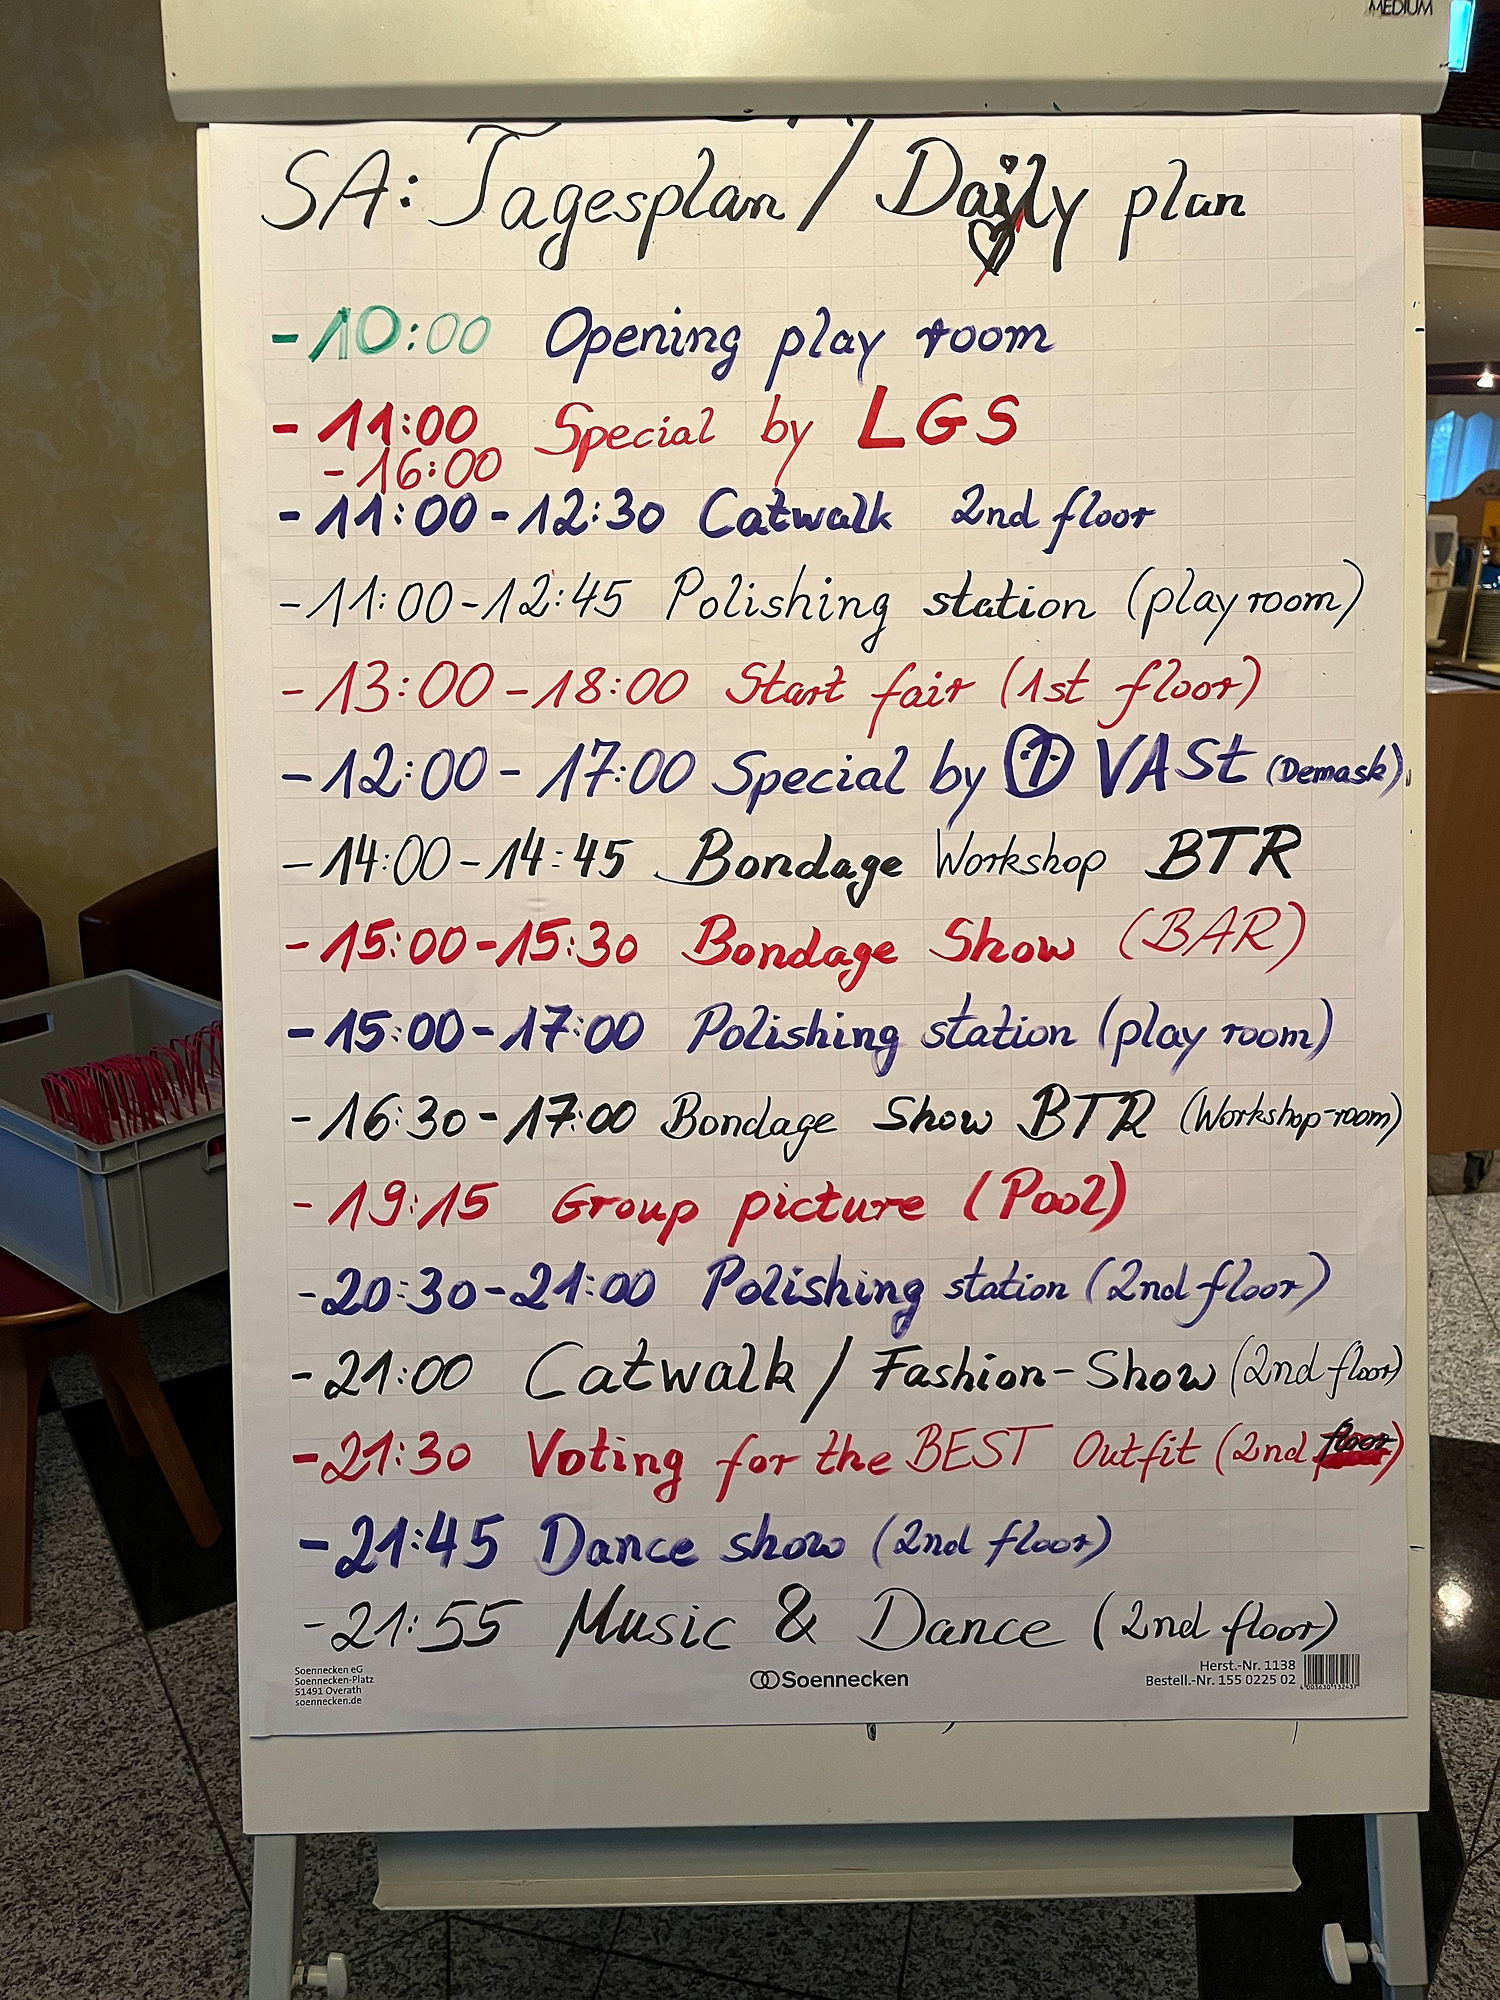 MEDIUM
SA: Tagesplan / Daily plan
- 10:00 Opening play room
- 11:00 Special by LGS
- 16:00
- 11:00 - 12:30 Catwalk 2nd floor
- 11:00 - 12:45 Polishing station (play room)
- 13:00 - 18:00 Start fair (1st floor)
- 12:00 - 17:00 Special by VASt (Demask)
- 14:00 - 14:45 Bondage Workshop BTR
- 15:00 - 15:30 Bondage Show (BAR)
- 15:00 - 17:00 Polishing station (play room)
- 16:30 - 17:00 Bondage Show BTR (Workshop-room)
- 19:15 Group picture (Pool)
- 20:30 - 21:00 Polishing station (2nd floor)
- 21:00 Catwalk / Fashion-Show (2nd floor)
- 21:30 Voting for the BEST Outfit (2nd floor)
- 21:45 Dance show (2nd floor)
- 21:55 Music & Dance (2nd floor)
Soennecken eG
Soennecken-Platz
51491 Overath
soennecken.de
Soennecken
Herst.-Nr. 1138
Bestell.-Nr. 155 0225 02
4 003630 132437